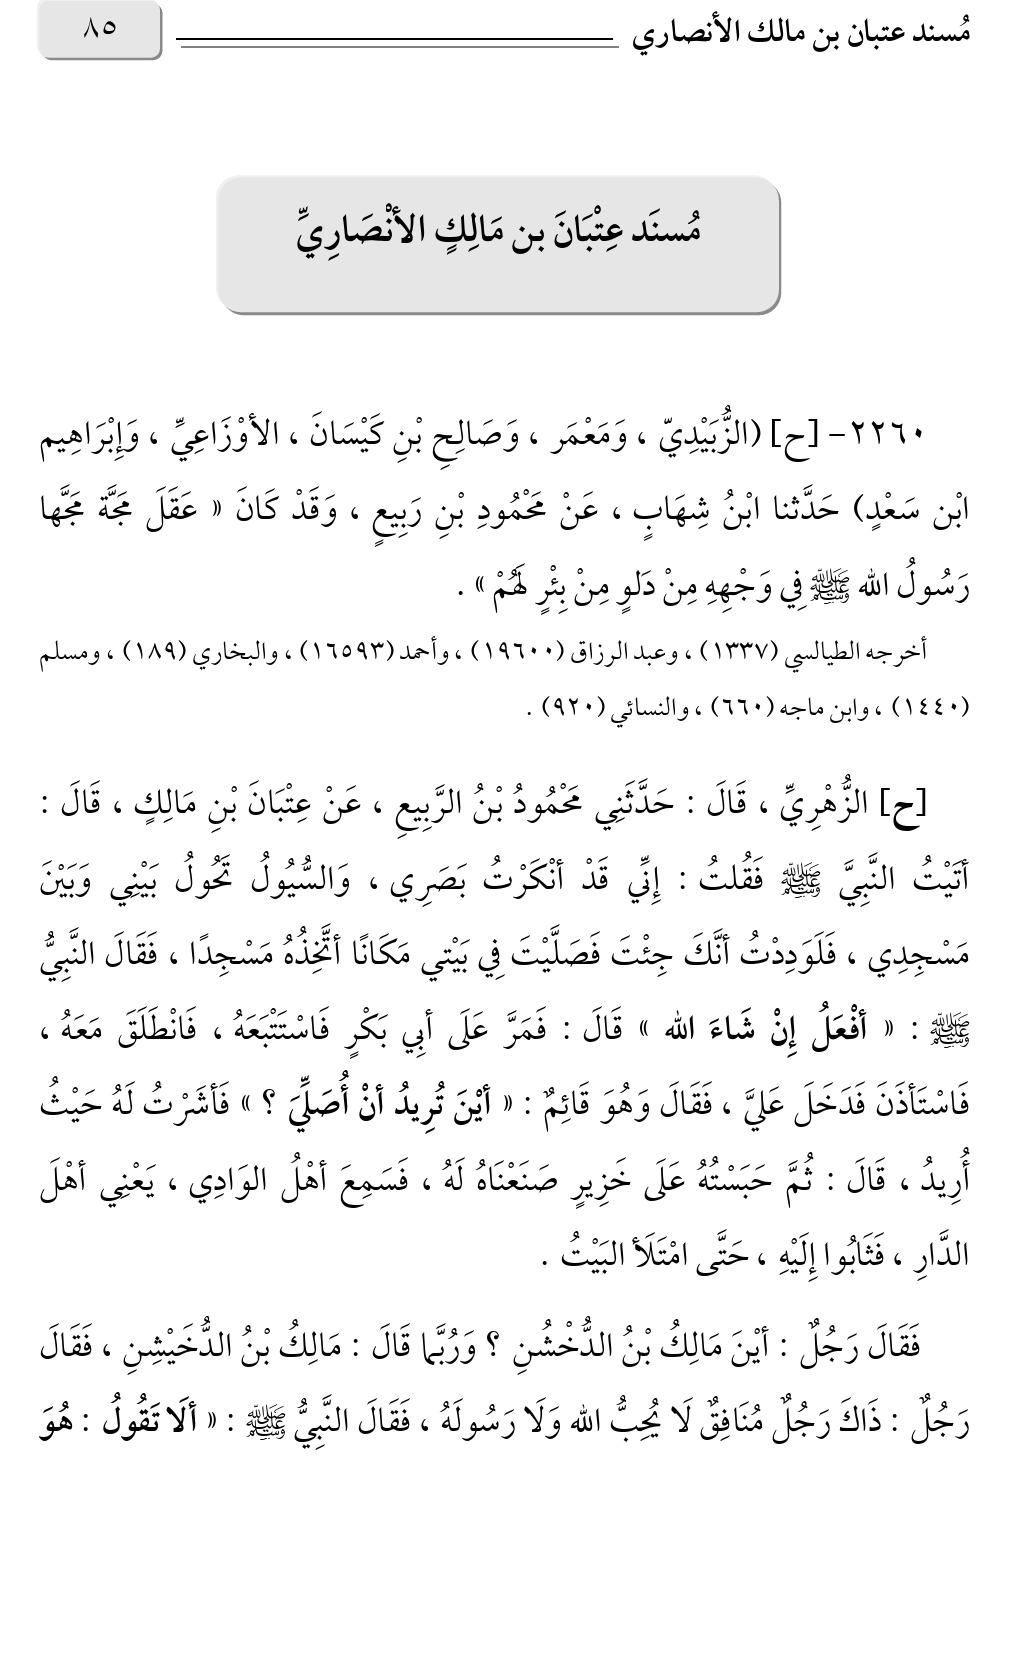 مُسند عتبان بن مالك الأنصاري ٨٥
مُسنَد عِتْبَانَ بن مَالِكٍ الأنْصَارِيِّ
٢٢٦٠- [ح] (الزُّبَيْدِيّ ، وَمَعْمَر ، وَصَالِحِ بْنِ كَيْسَانَ ، الأوْزَاعِيِّ ، وَإِبْرَاهِيم
ابْن سَعْدٍ) حَدَّثنا ابْنُ شِهَابٍ ، عَنْ مَحْمُودِ بْنِ رَبِيعٍ ، وَقَدْ كَانَ « عَقَلَ مَجَّة مَجَّها
رَسُولُ الله ﷺ فِي وَجْهِهِ مِنْ دَلوٍ مِنْ بِئْرٍ لَهُمْ » .
أخرجه الطيالسي (١٣٣٧) ، وعبد الرزاق (١٩٦٠٠) ، وأحمد (١٦٥٩٣) ، والبخاري (١٨٩) ، ومسلم
(١٤٤٠) ، وابن ماجه (٦٦٠) ، والنسائي (٩٢٠) .
[ح] الزُّهْرِيِّ ، قَالَ : حَدَّثَنِي مَحْمُودُ بْنُ الرَّبِيعِ ، عَنْ عِتْبَانَ بْنِ مَالِكٍ ، قَالَ :
أتَيْتُ النَّبِيَّ ﷺ فَقُلتُ : إِنِّي قَدْ أنْكَرْتُ بَصَرِي ، وَالسُّيُولُ تَحُولُ بَيْنِي وَبَيْنَ
مَسْجِدِي ، فَلَوَدِدْتُ أنَّكَ جِئْتَ فَصَلَّيْتَ فِي بَيْتي مَكَانًا أتَّخِذُهُ مَسْجِدًا ، فَقَالَ النَّبِيُّ
ﷺ : « أفْعَلُ إِنْ شَاءَ الله » قَالَ : فَمَرَّ عَلَى أبِي بَكْرٍ فَاسْتَتْبَعَهُ ، فَانْطَلَقَ مَعَهُ ،
فَاسْتَأذَنَ فَدَخَلَ عَليَّ ، فَقَالَ وَهُوَ قَائِمٌ : « أيْنَ تُرِيدُ أنْ أُصَلِّيَ ؟ » فَأشَرْتُ لَهُ حَيْثُ
أُرِيدُ ، قَالَ : ثُمَّ حَبَسْتُهُ عَلَى خَزِيرٍ صَنَعْنَاهُ لَهُ ، فَسَمِعَ أهْلُ الوَادِي ، يَعْنِي أهْلَ
الدَّارِ ، فَثَابُوا إِلَيْهِ ، حَتَّى امْتَلَأ البَيْتُ .
فَقَالَ رَجُلٌ : أيْنَ مَالِكُ بْنُ الدُّخْشُنِ ؟ وَرُبَّما قَالَ : مَالِكُ بْنُ الدُّخَيْشِنِ ، فَقَالَ
رَجُلٌ : ذَاكَ رَجُلٌ مُنَافِقٌ لَا يُحِبُّ الله وَلَا رَسُولَهُ ، فَقَالَ النَّبِيُّ ﷺ : « ألَا تَقُولُ : هُوَ